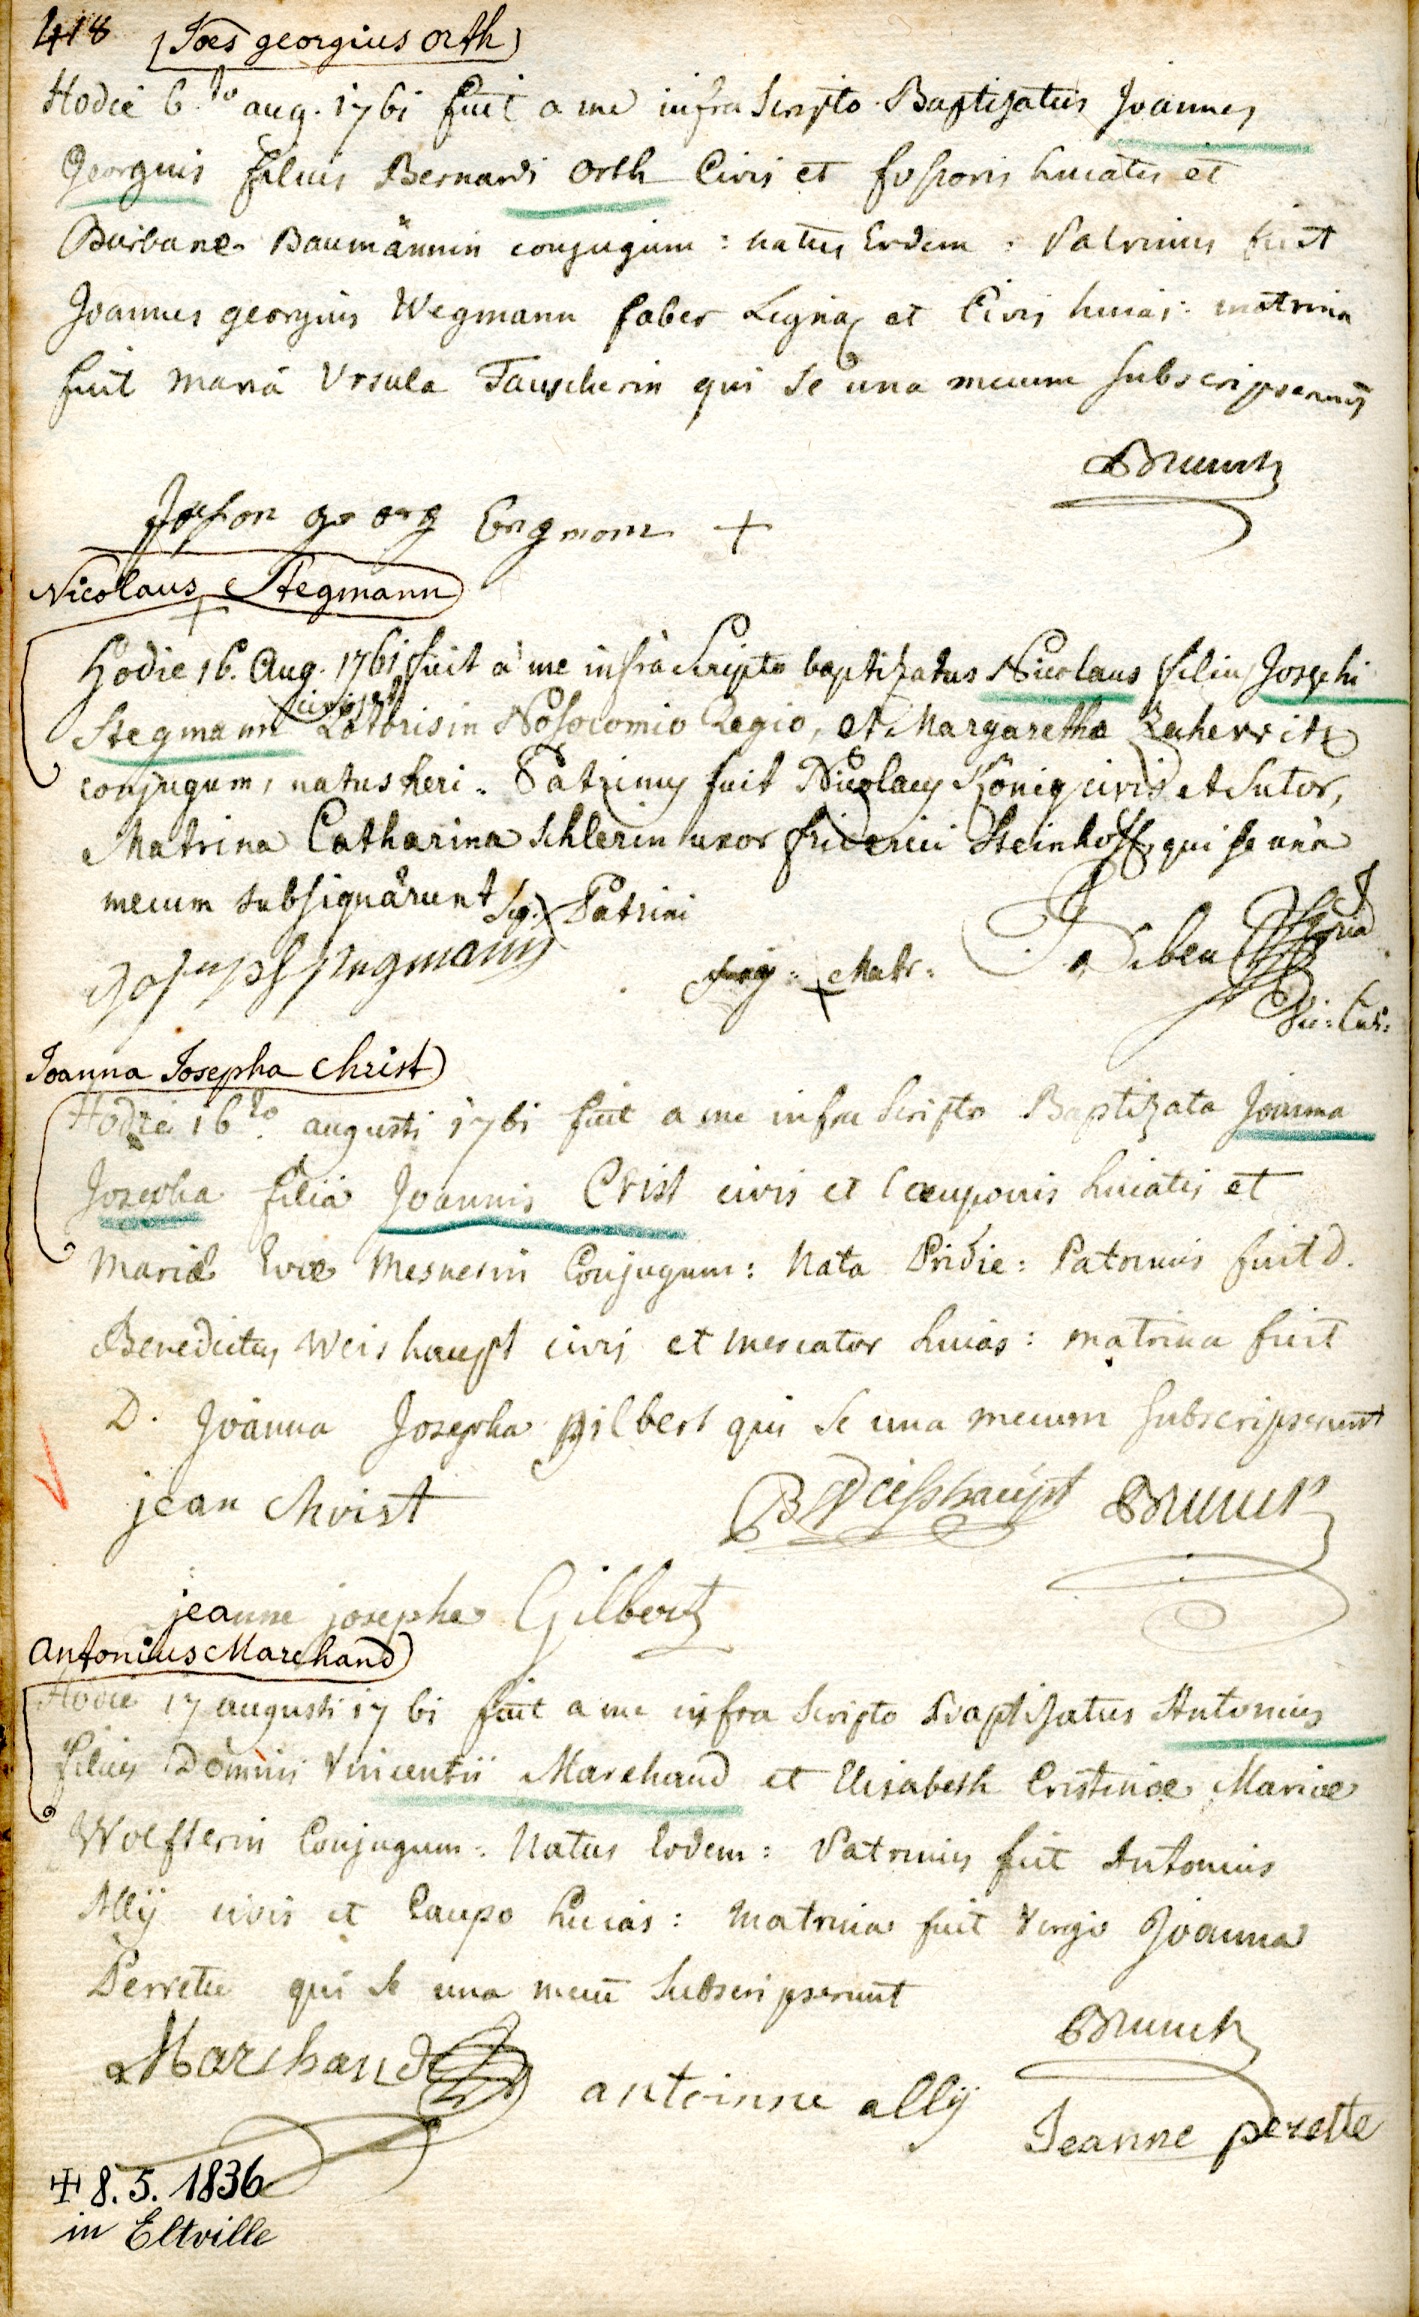 418 (Joes georgius orth)
Hodie 6to aug. 1761 fuit a me infra Scripto Baptizatus Joannes
Georgius filius Bernardi Orth Civis et fossoris huiatis et
Barbarae Baumännin conjugum: natus Eodem: Patrinus fuit
Joannes georgius Wegmann faber Lignar et Civis huias: matrina
fuit Maria Ursula Tauscherin qui se una mecum subscripserunt
Brunck
georg +
Nicolaus Stegmann
+
Hodie 16. Aug. 1761 fuit a me infra Scripto baptizatus Nicolaus filius Josephi
civis et
Stegmann Lotoris in Nosocomio Regio, et Margaretha
conjugum, natus heri. Patrinus fuit Nicolaus König civis et Sutor,
Matrina Catharina Schlerin uxor friderici Steinhoff, qui se unà
mecum subsignârunt Sig. Patrini
Joseph stegmann Sig: + Matr:
Vic: Cur:
Joanna Josepha Christ)
Hodie 16to augusti 1761 fuit a me infra Scripto Baptizata Joanna
Josepha filia Joannis Crist civis et Cauponis huiatis et
Mariae Evae Mesnerin Conjugum: Nata Pridie: Patrinus fuit D.
Benedictus Weishaupt civis et mercator huias: matrina fuit
D. Joanna Josepha gilbert qui se una mecum subscripserunt
jean christ B Weisshaupt Brunck
jeanne josephe Gilbert
Antonius Marchand)
Hodie 17 augusti 1761 fuit a me infra Scripto Baptizatus Antonius
filius Domini Vincentii Marchand et Elisabeth Cristinae Mariae
Woelflerin Conjugum: Natus Eodem: Patrinus fuit Antonius
Allij civis et Caupo huias: Matrina fuit Virgo Joanna
Perrette qui se una mecū Subscripserunt
Brunck
Marchand antoinne allij Jeanne perette
✠ 8. 5. 1836
in Eltville